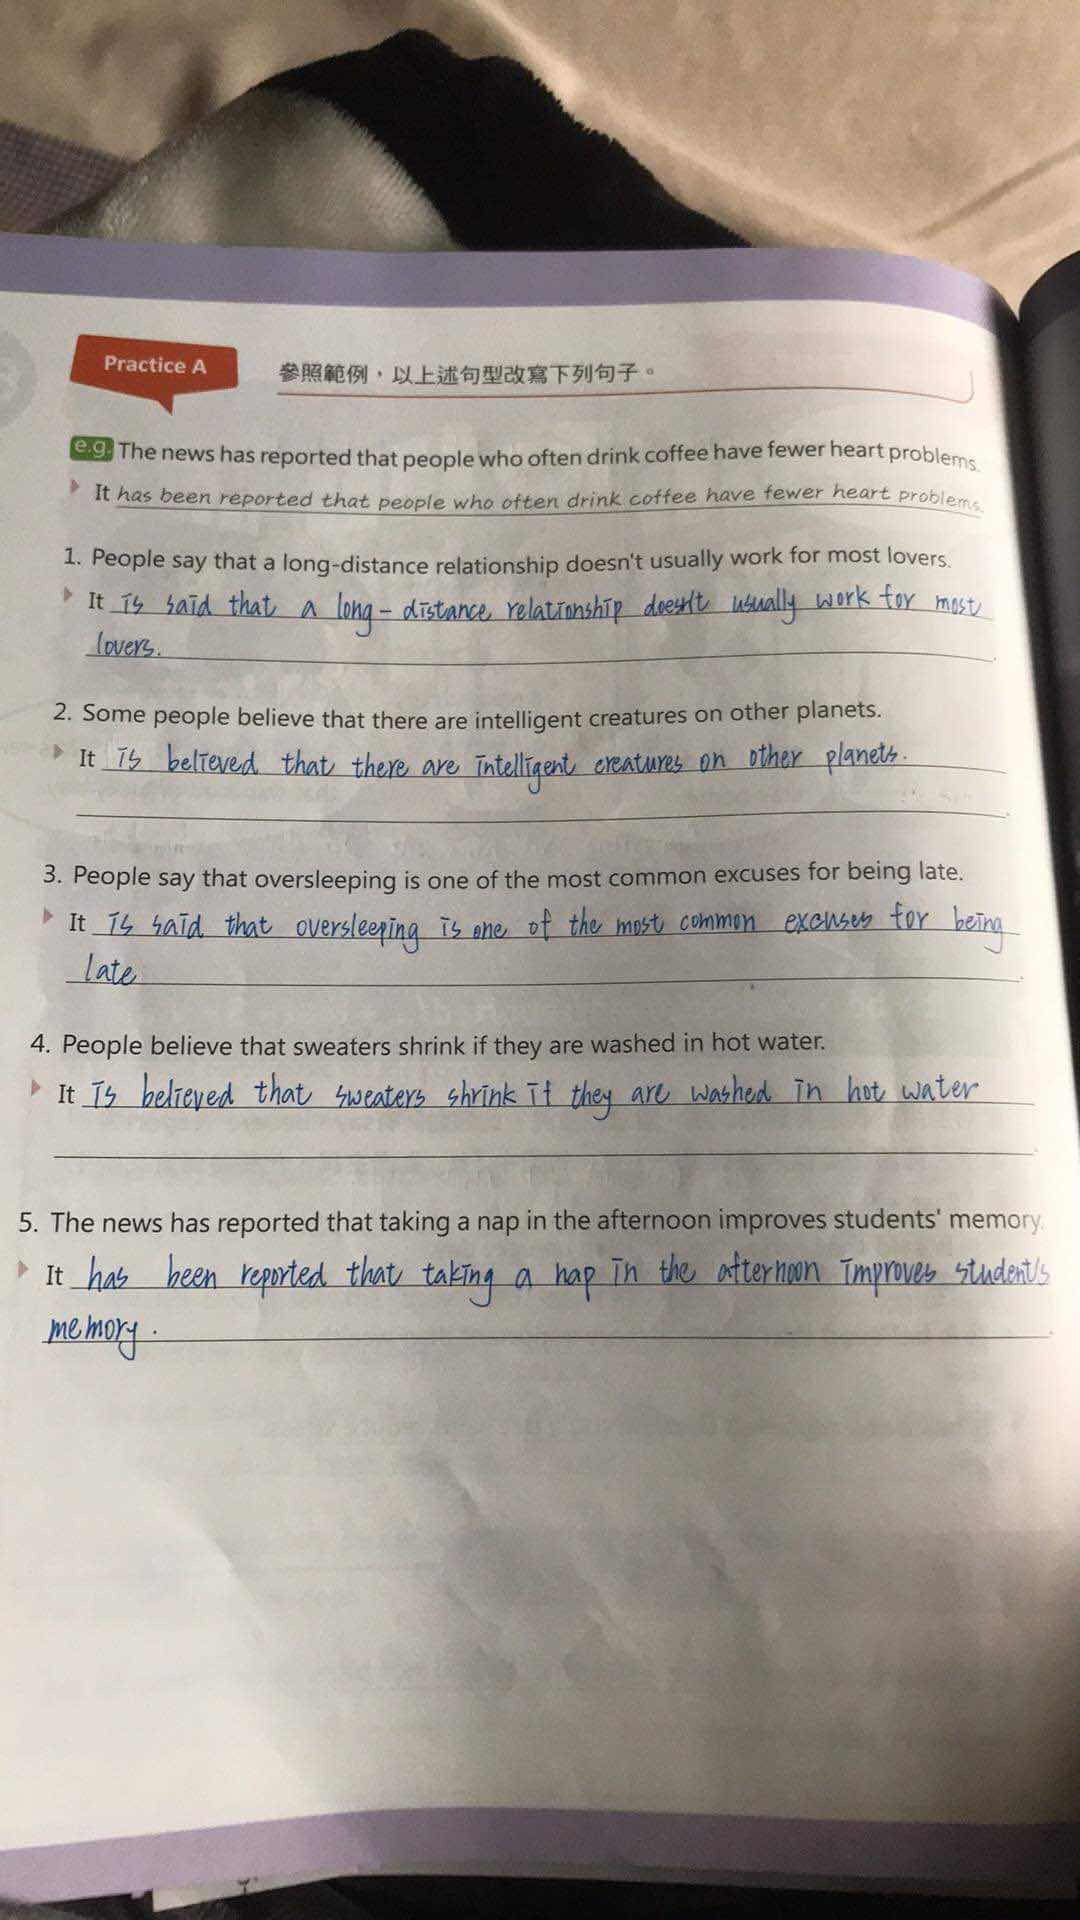 Practice A
參照範例，以上述句型改寫下列句子。
e.g. The news has reported that people who often drink coffee have fewer heart problems.
It has been reported that people who often drink coffee have fewer heart problems.
1. People say that a long-distance relationship doesn't usually work for most lovers.
It is said that a long-distance relationship doesn't usually work for most
lovers.
2. Some people believe that there are intelligent creatures on other planets.
It is believed that there are intelligent creatures on other planets.
3. People say that oversleeping is one of the most common excuses for being late.
It is said that oversleeping is one of the most common excuses for being
late.
4. People believe that sweaters shrink if they are washed in hot water.
It is believed that sweaters shrink if they are washed in hot water
.
5. The news has reported that taking a nap in the afternoon improves students' memory.
It has been reported that taking a nap in the afternoon improves student's
memory.